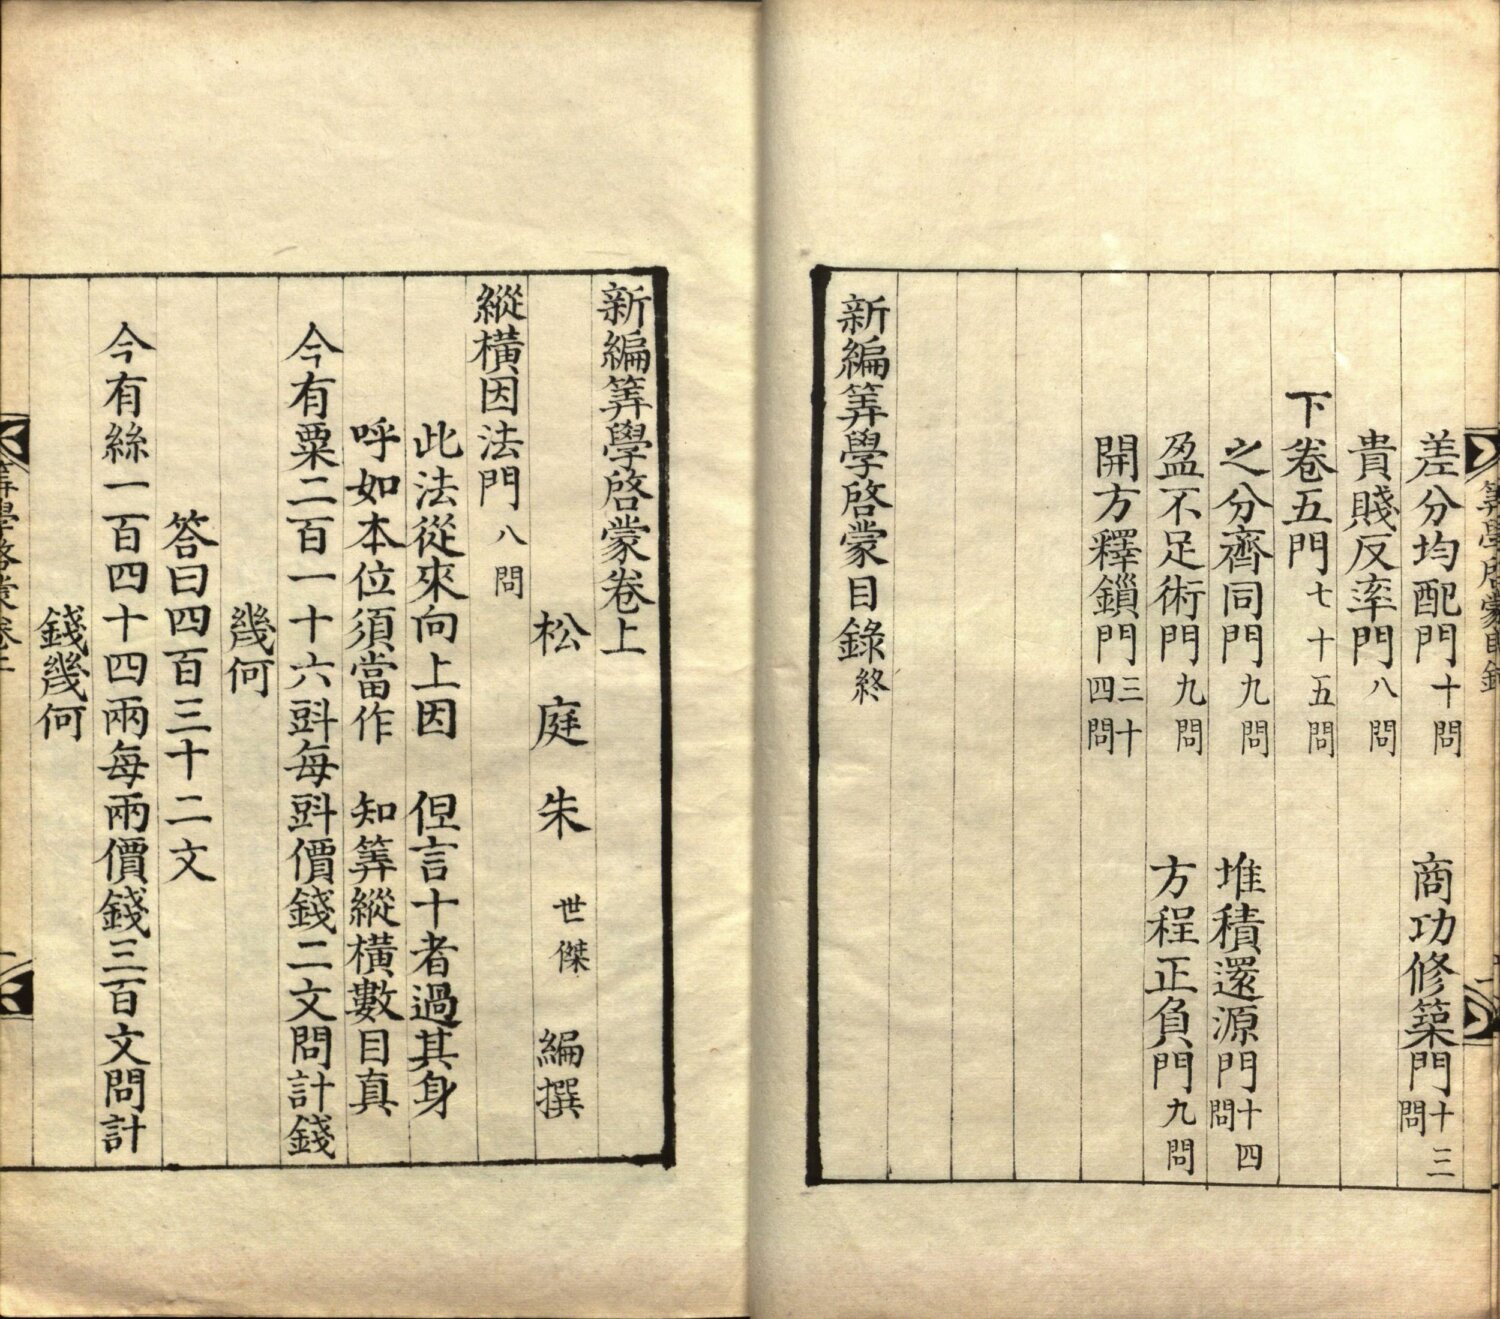 差分均配門十問　商功修築門十三問
貴賤反率門八問
下卷五門七十五問
之分齊同門九問　堆積還源門十四問
盈不足術門九問　方程正負門九問
開方釋鎖門三十四問
新編筭學啓蒙目錄終
新編筭學啓蒙卷上
松庭朱世傑編撰
縱橫因法門八問
此法從來向上因　但言十者過其身
呼如本位須當作　知筭縱橫數目真
今有粟二百一十六㪷每㪷價錢二文問計錢
幾何
答曰四百三十二文
今有絲一百四十四兩每兩價錢三百文問計
錢幾何